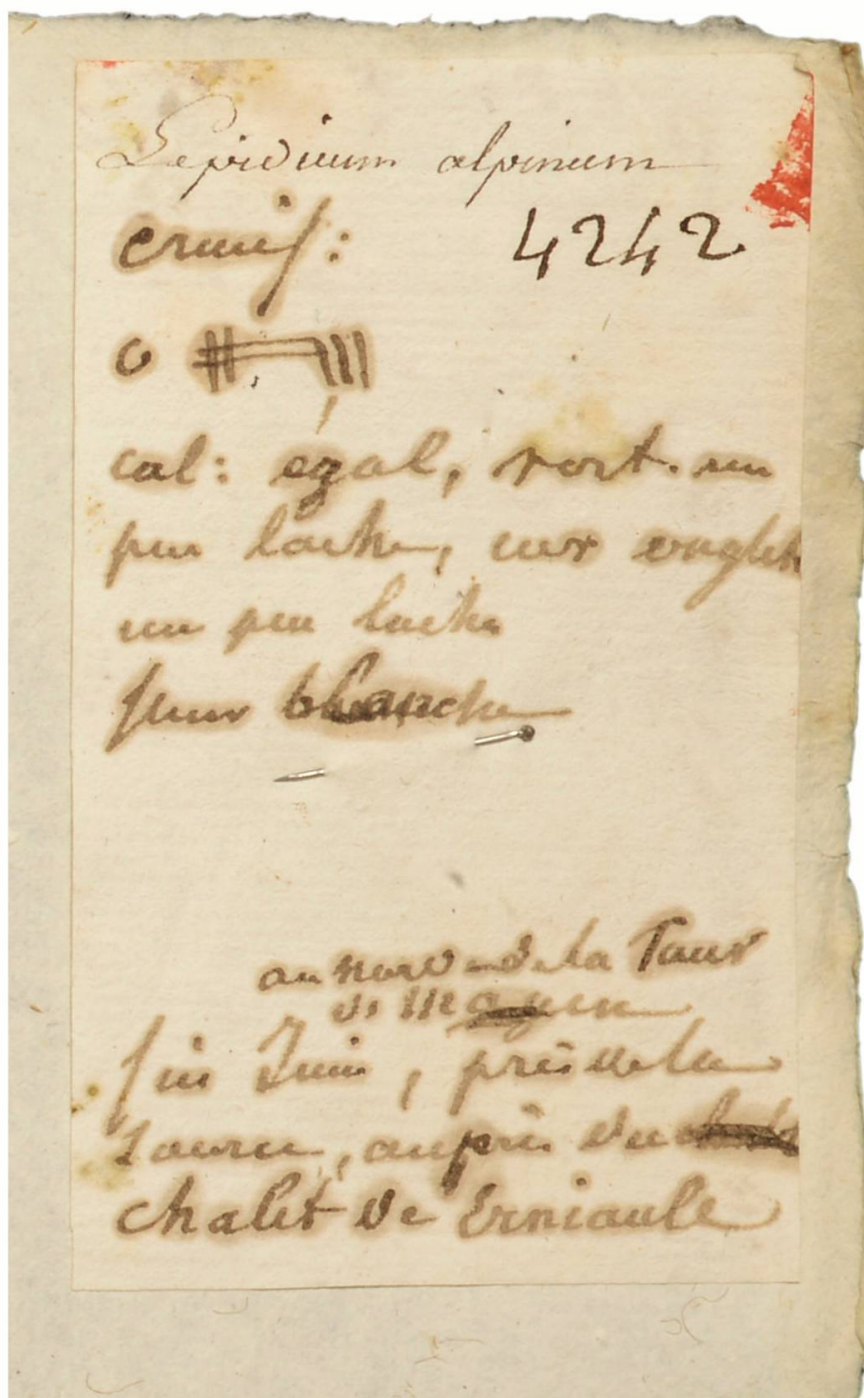 Lepidium alpinum
crucif: 4242
cal: égal, vert. un
peu lache, sur onglets
un peu lache
fleur blanche
au nord de la Tour
de Mayen
fin Juin, près de la
source, auprès du
chalet de